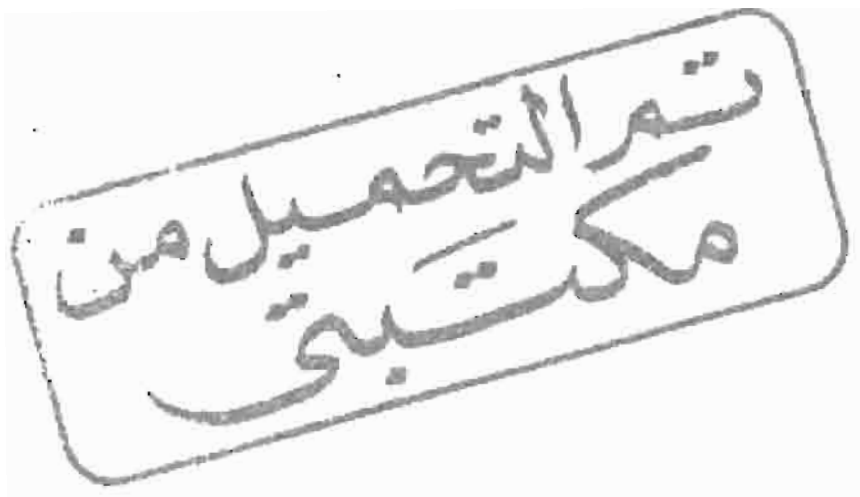 تم التحميل من
مكتبتى